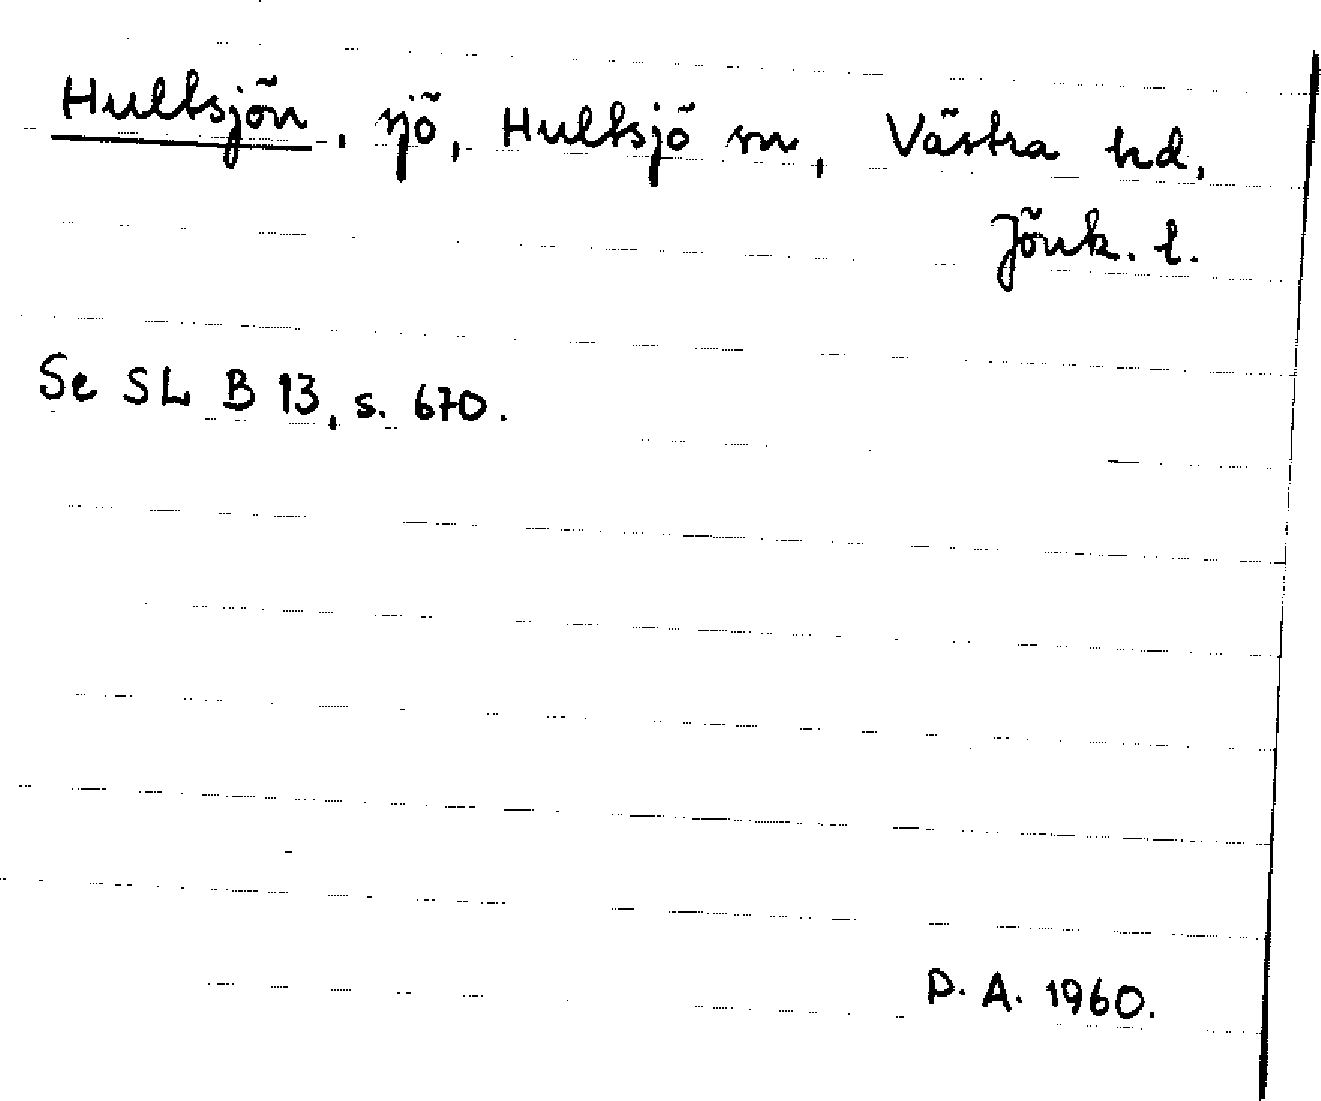 Hultsjön, sjö, Hultsjö sn, Västra hd,
Jönk. l.
Se SL B 13, s. 670.
D. A. 1960.